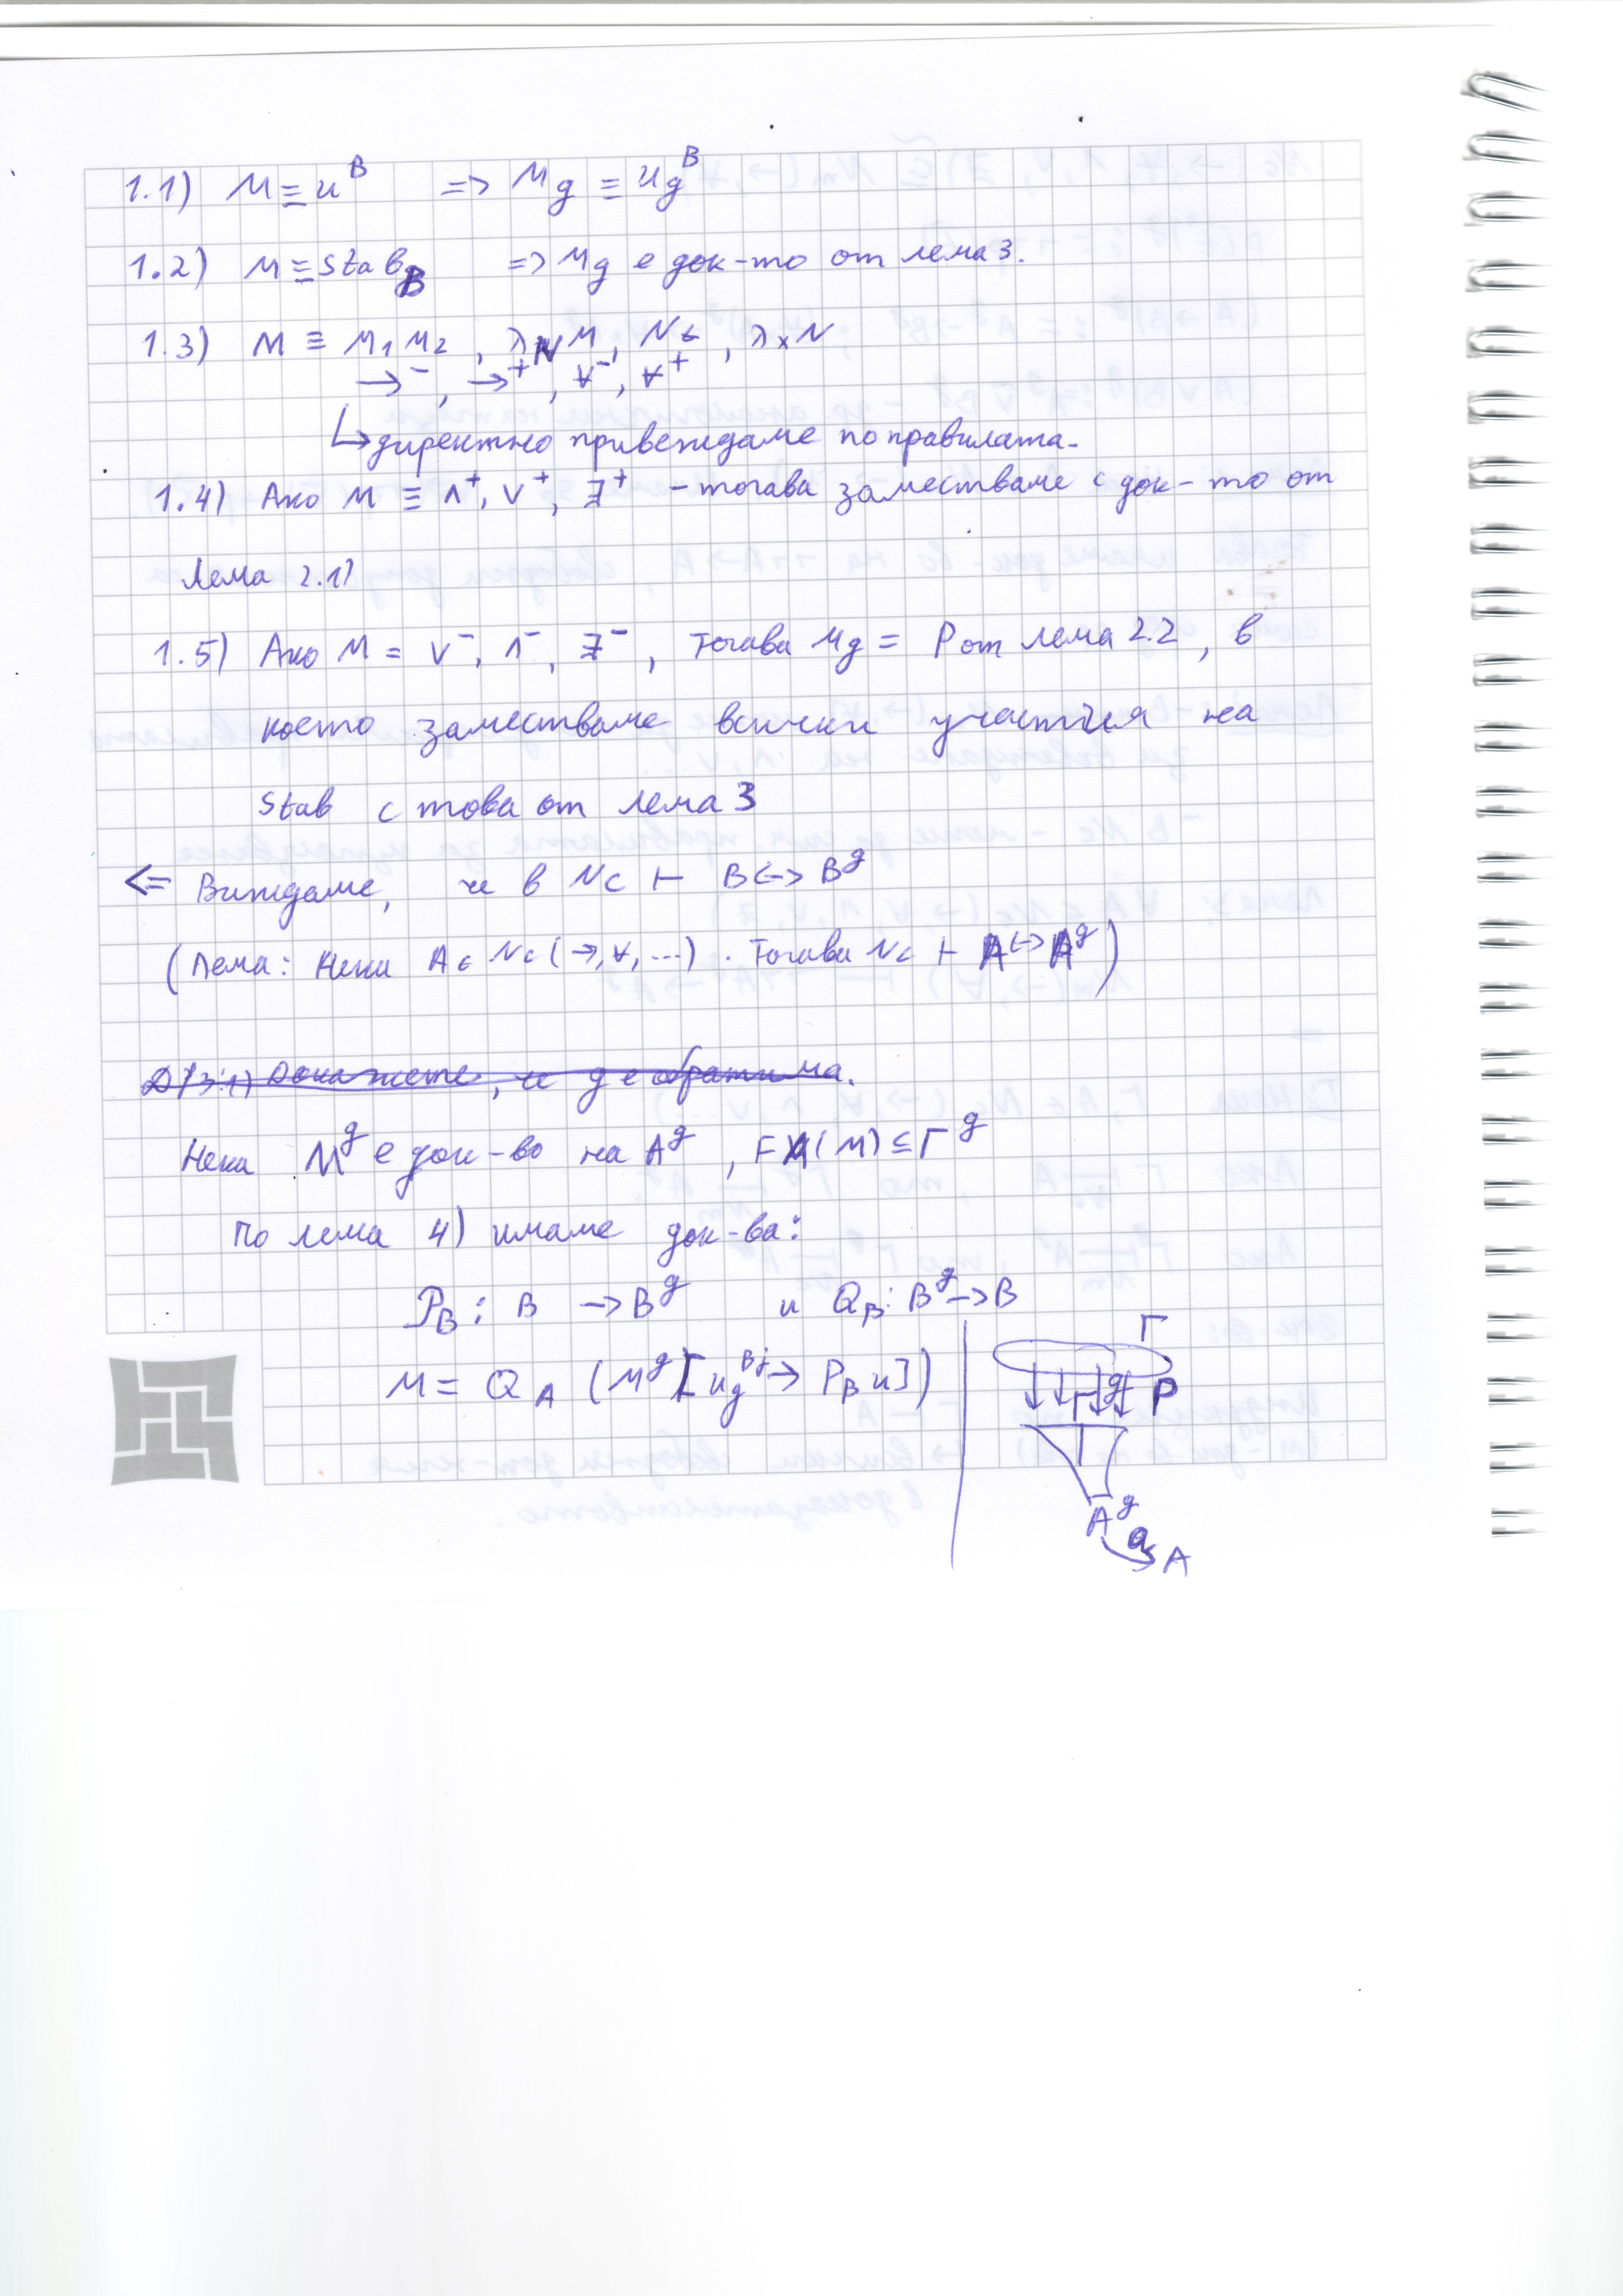 1.1) M ≡ u^B => M_g ≡ u_g^B
1.2) M ≡ Stab_B => M_g е док-то от лема 3.
1.3) M ≡ M₁M₂, λ_N M, Nt, λ_x N
→⁻, →⁺, ∀⁻, ∀⁺
↳ директно привеждаме по правилата.
1.4) Ако M ≡ ∧⁺, ∨⁺, ∃⁺ – тогава заместваме с док-то от
Лема 2.1)
1.5) Ако M = ∨⁻, ∧⁻, ∃⁻, Тогава M_g = P от лема 2.2, в
което заместваме всички участия на
Stab с това от лема 3
<= Виждаме, че в Nc ⊢ B <-> B^g
(Лема: Нека A ∈ Nc (→, ∀, ...). Тогава Nc ⊢ A <-> A^g)
Докажете, че g е обратима.
Нека M^g е док-во на A^g, FA(M) ⊆ Γ^g
По лема 4) имаме док-ва:
P_B : B → B^g и Q_B : B^g → B
M = Q_A (M^g [u_g^{B^g} → P_B u])
Γ
Γ^g P
A^g
Q
A